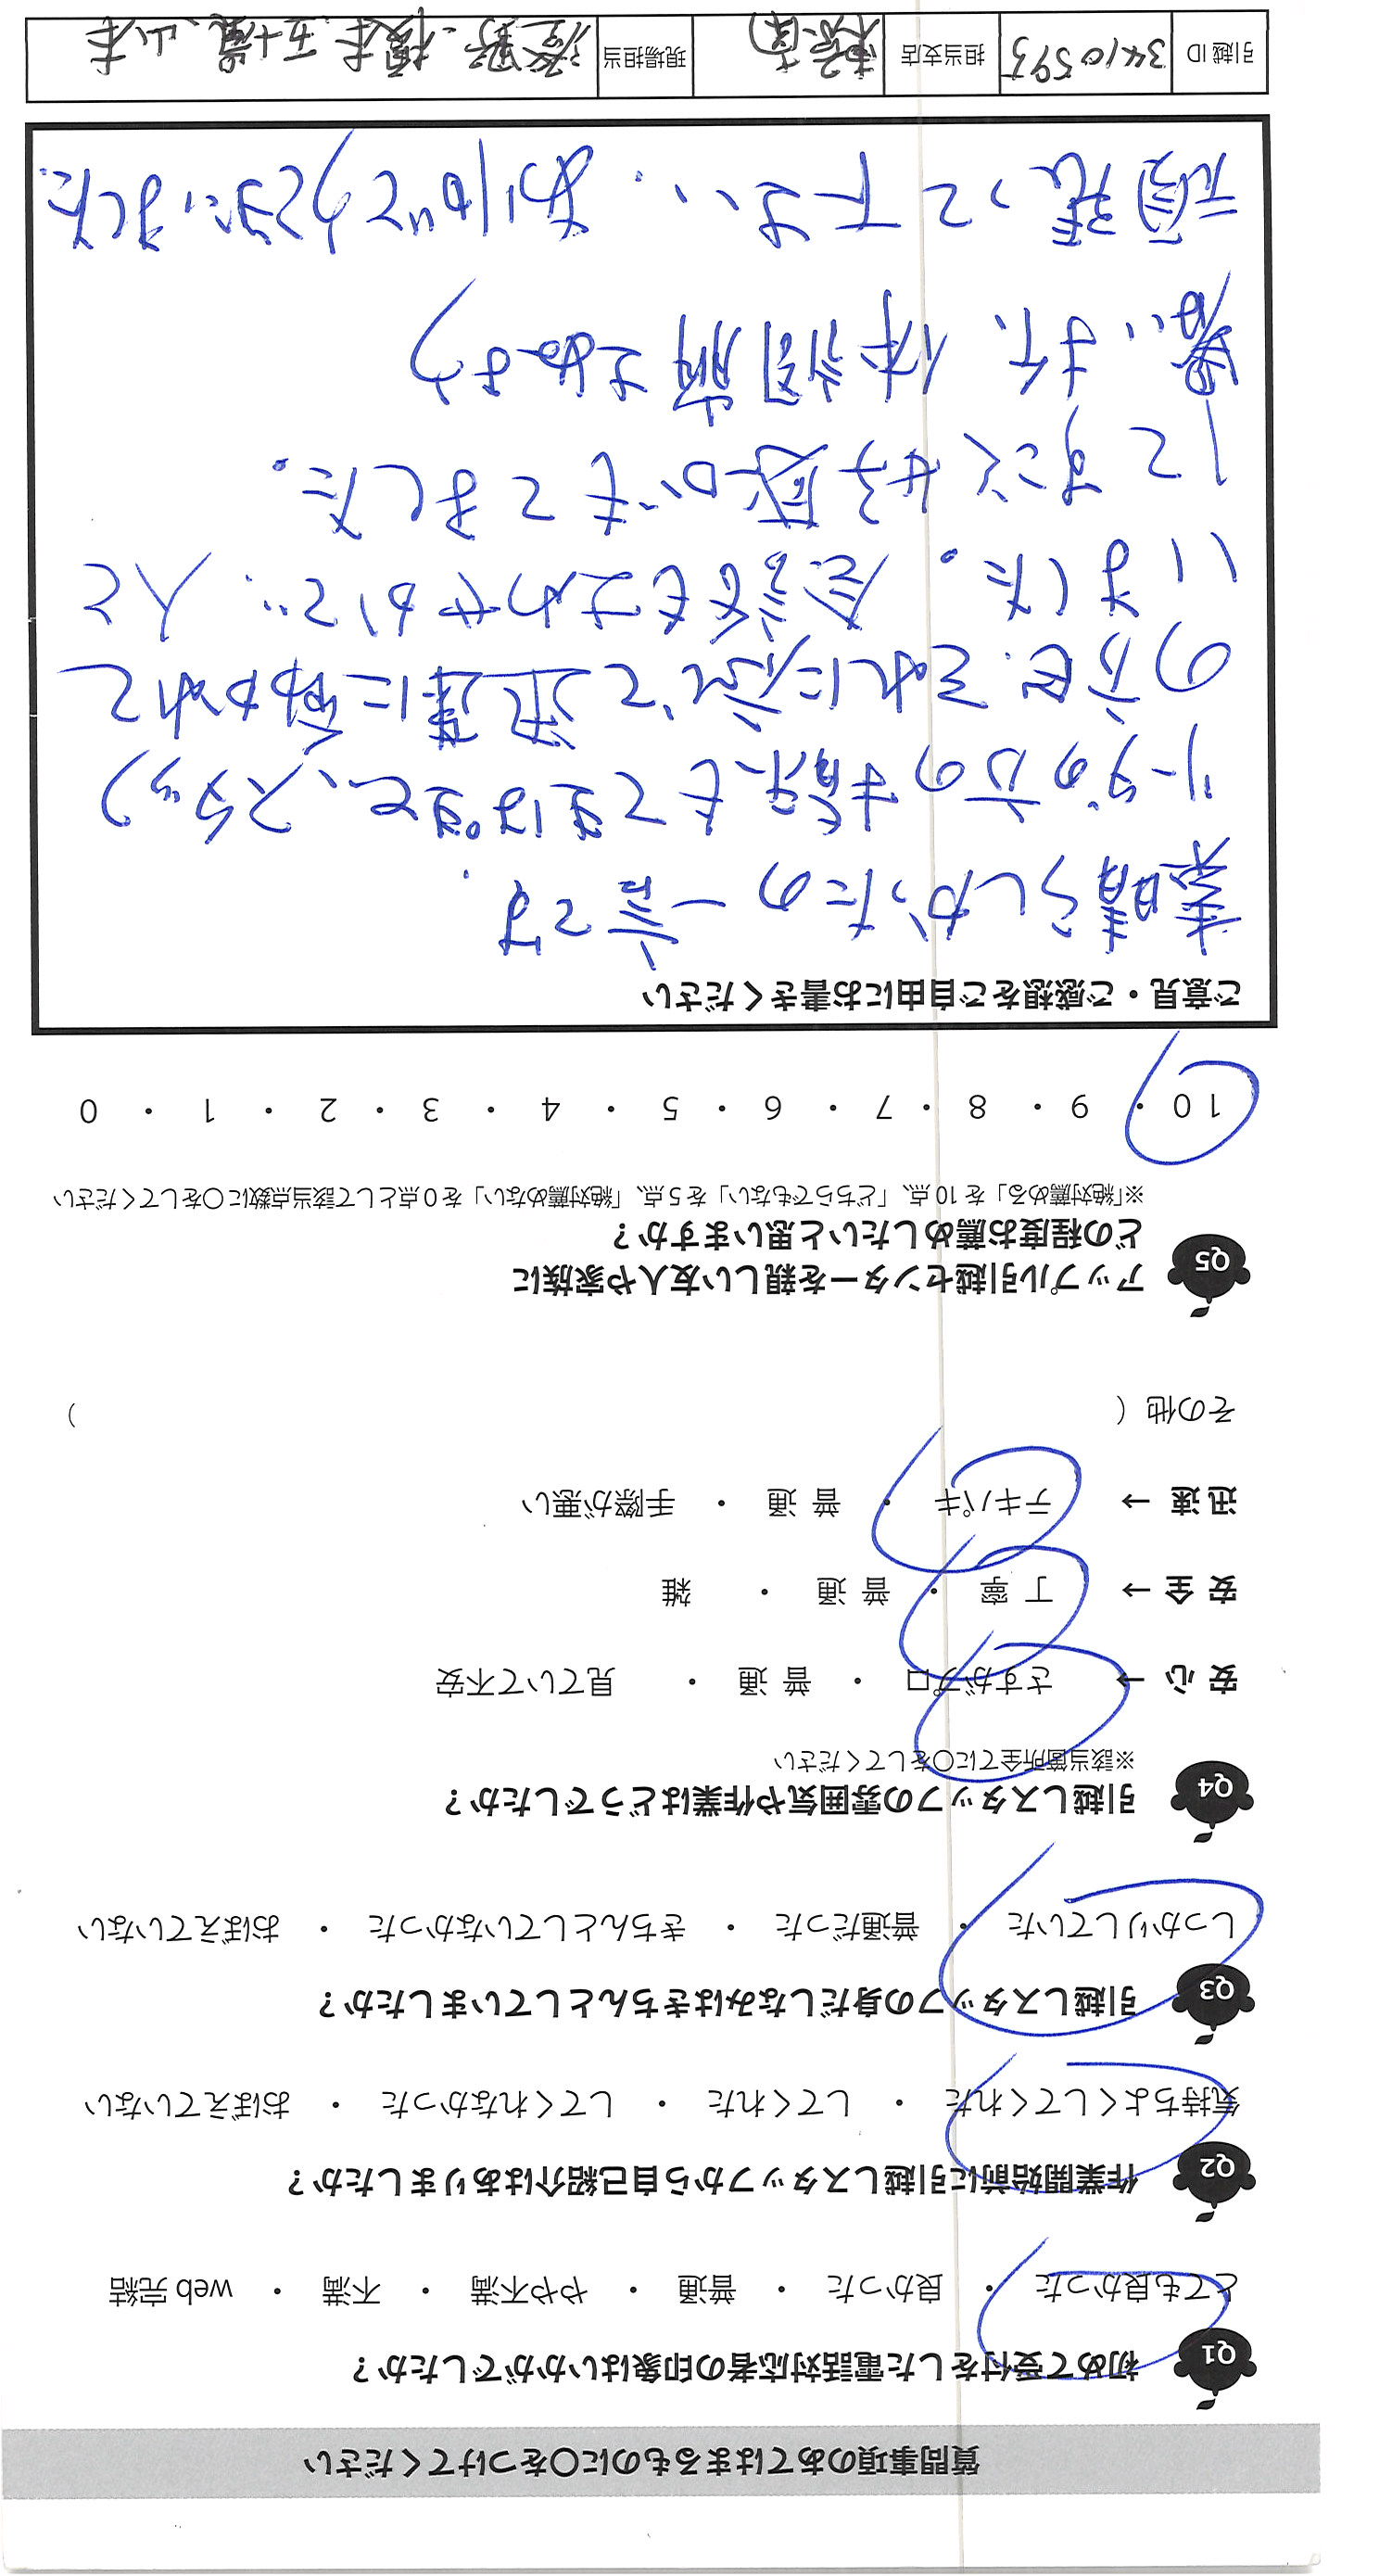 質問事項のあてはまるものに○をつけてください
Q1 初めて受付をした電話対応者の印象はいかがでしたか?
とても良かった ・ 良かった ・ 普通 ・ やや不満 ・ 不満 ・ web 完結
Q2 作業開始前に引越しスタッフから自己紹介はありましたか?
気持ちよくしてくれた ・ してくれた ・ してくれなかった ・ おぼえていない
Q3 引越しスタッフの身だしなみはきちんとしていましたか?
しっかりしていた ・ 普通だった ・ きちんとしていなかった ・ おぼえていない
Q4 引越しスタッフの雰囲気や作業はどうでしたか?
※該当箇所全てに○をしてください
安心 → さすがプロ ・ 普通 ・ 見ていて不安
安全 → 丁寧 ・ 普通 ・ 雑
迅速 → テキパキ ・ 普通 ・ 手際が悪い
その他 ( )
Q5 アップル引越センターを親しい友人や家族に
どの程度お薦めしたいと思いますか?
※「絶対薦める」を 10 点、「どちらでもない」を 5 点、「絶対薦めない」を 0 点として該当点数に○をしてください
10 ・ 9 ・ 8 ・ 7 ・ 6 ・ 5 ・ 4 ・ 3 ・ 2 ・ 1 ・ 0
ご意見・ご感想をご自由にお書きください
素晴らしかったの一言です.
リーダの方の指示もてきぱきと、スタッフ
の方も、それに応じて迅速に動かれて
いました。会話もさわやかで、人と
してすごく好感がもてました。
暑い、ます、体調崩さぬよう
頑張って下さい。ありがとうございました.
引越 ID 3410593 担当支店 現場担当 榎本、五十嵐、山本